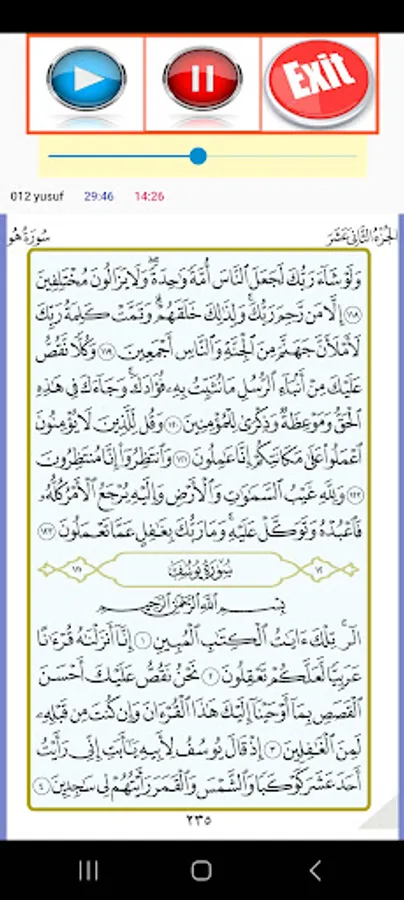 Exit
012 yusuf 29:46 14:26
الجزء الثاني عشر سورة هود
وَلَوْ شَآءَ رَبُّكَ لَجَعَلَ ٱلنَّاسَ أُمَّةً وَٰحِدَةً ۖ وَلَا يَزَالُونَ مُخْتَلِفِينَ
١١٨ إِلَّا مَن رَّحِمَ رَبُّكَ ۚ وَلِذَٰلِكَ خَلَقَهُمْ ۗ وَتَمَّتْ كَلِمَةُ رَبِّكَ
لَأَمْلَأَنَّ جَهَنَّمَ مِنَ ٱلْجِنَّةِ وَٱلنَّاسِ أَجْمَعِينَ ١١٩ وَكُلًّا نَّقُصُّ
عَلَيْكَ مِنْ أَنۢبَآءِ ٱلرُّسُلِ مَا نُثَبِّتُ بِهِۦ فُؤَادَكَ ۚ وَجَآءَكَ فِى هَٰذِهِ
ٱلْحَقُّ وَمَوْعِظَةٌ وَذِكْرَىٰ لِلْمُؤْمِنِينَ ١٢٠ وَقُل لِّلَّذِينَ لَا يُؤْمِنُونَ
ٱعْمَلُوا۟ عَلَىٰ مَكَانَتِكُمْ إِنَّا عَٰمِلُونَ ١٢١ وَٱنتَظِرُوٓا۟ إِنَّا مُنتَظِرُونَ
١٢٢ وَلِلَّهِ غَيْبُ ٱلسَّمَٰوَٰتِ وَٱلْأَرْضِ وَإِلَيْهِ يُرْجَعُ ٱلْأَمْرُ كُلُّهُۥ
فَٱعْبُدْهُ وَتَوَكَّلْ عَلَيْهِ ۚ وَمَا رَبُّكَ بِغَٰفِلٍ عَمَّا تَعْمَلُونَ ١٢٣
سورة يوسف
بِسْمِ ٱللَّهِ ٱلرَّحْمَٰنِ ٱلرَّحِيمِ
الٓر ۚ تِلْكَ ءَايَٰتُ ٱلْكِتَٰبِ ٱلْمُبِينِ ١ إِنَّآ أَنزَلْنَٰهُ قُرْءَٰنًا
عَرَبِيًّا لَّعَلَّكُمْ تَعْقِلُونَ ٢ نَحْنُ نَقُصُّ عَلَيْكَ أَحْسَنَ
ٱلْقَصَصِ بِمَآ أَوْحَيْنَآ إِلَيْكَ هَٰذَا ٱلْقُرْءَانَ وَإِن كُنتَ مِن قَبْلِهِۦ
لَمِنَ ٱلْغَٰفِلِينَ ٣ إِذْ قَالَ يُوسُفُ لِأَبِيهِ يَٰٓأَبَتِ إِنِّى رَأَيْتُ
أَحَدَ عَشَرَ كَوْكَبًا وَٱلشَّمْسَ وَٱلْقَمَرَ رَأَيْتُهُمْ لِى سَٰجِدِينَ ٤
٢٣٥